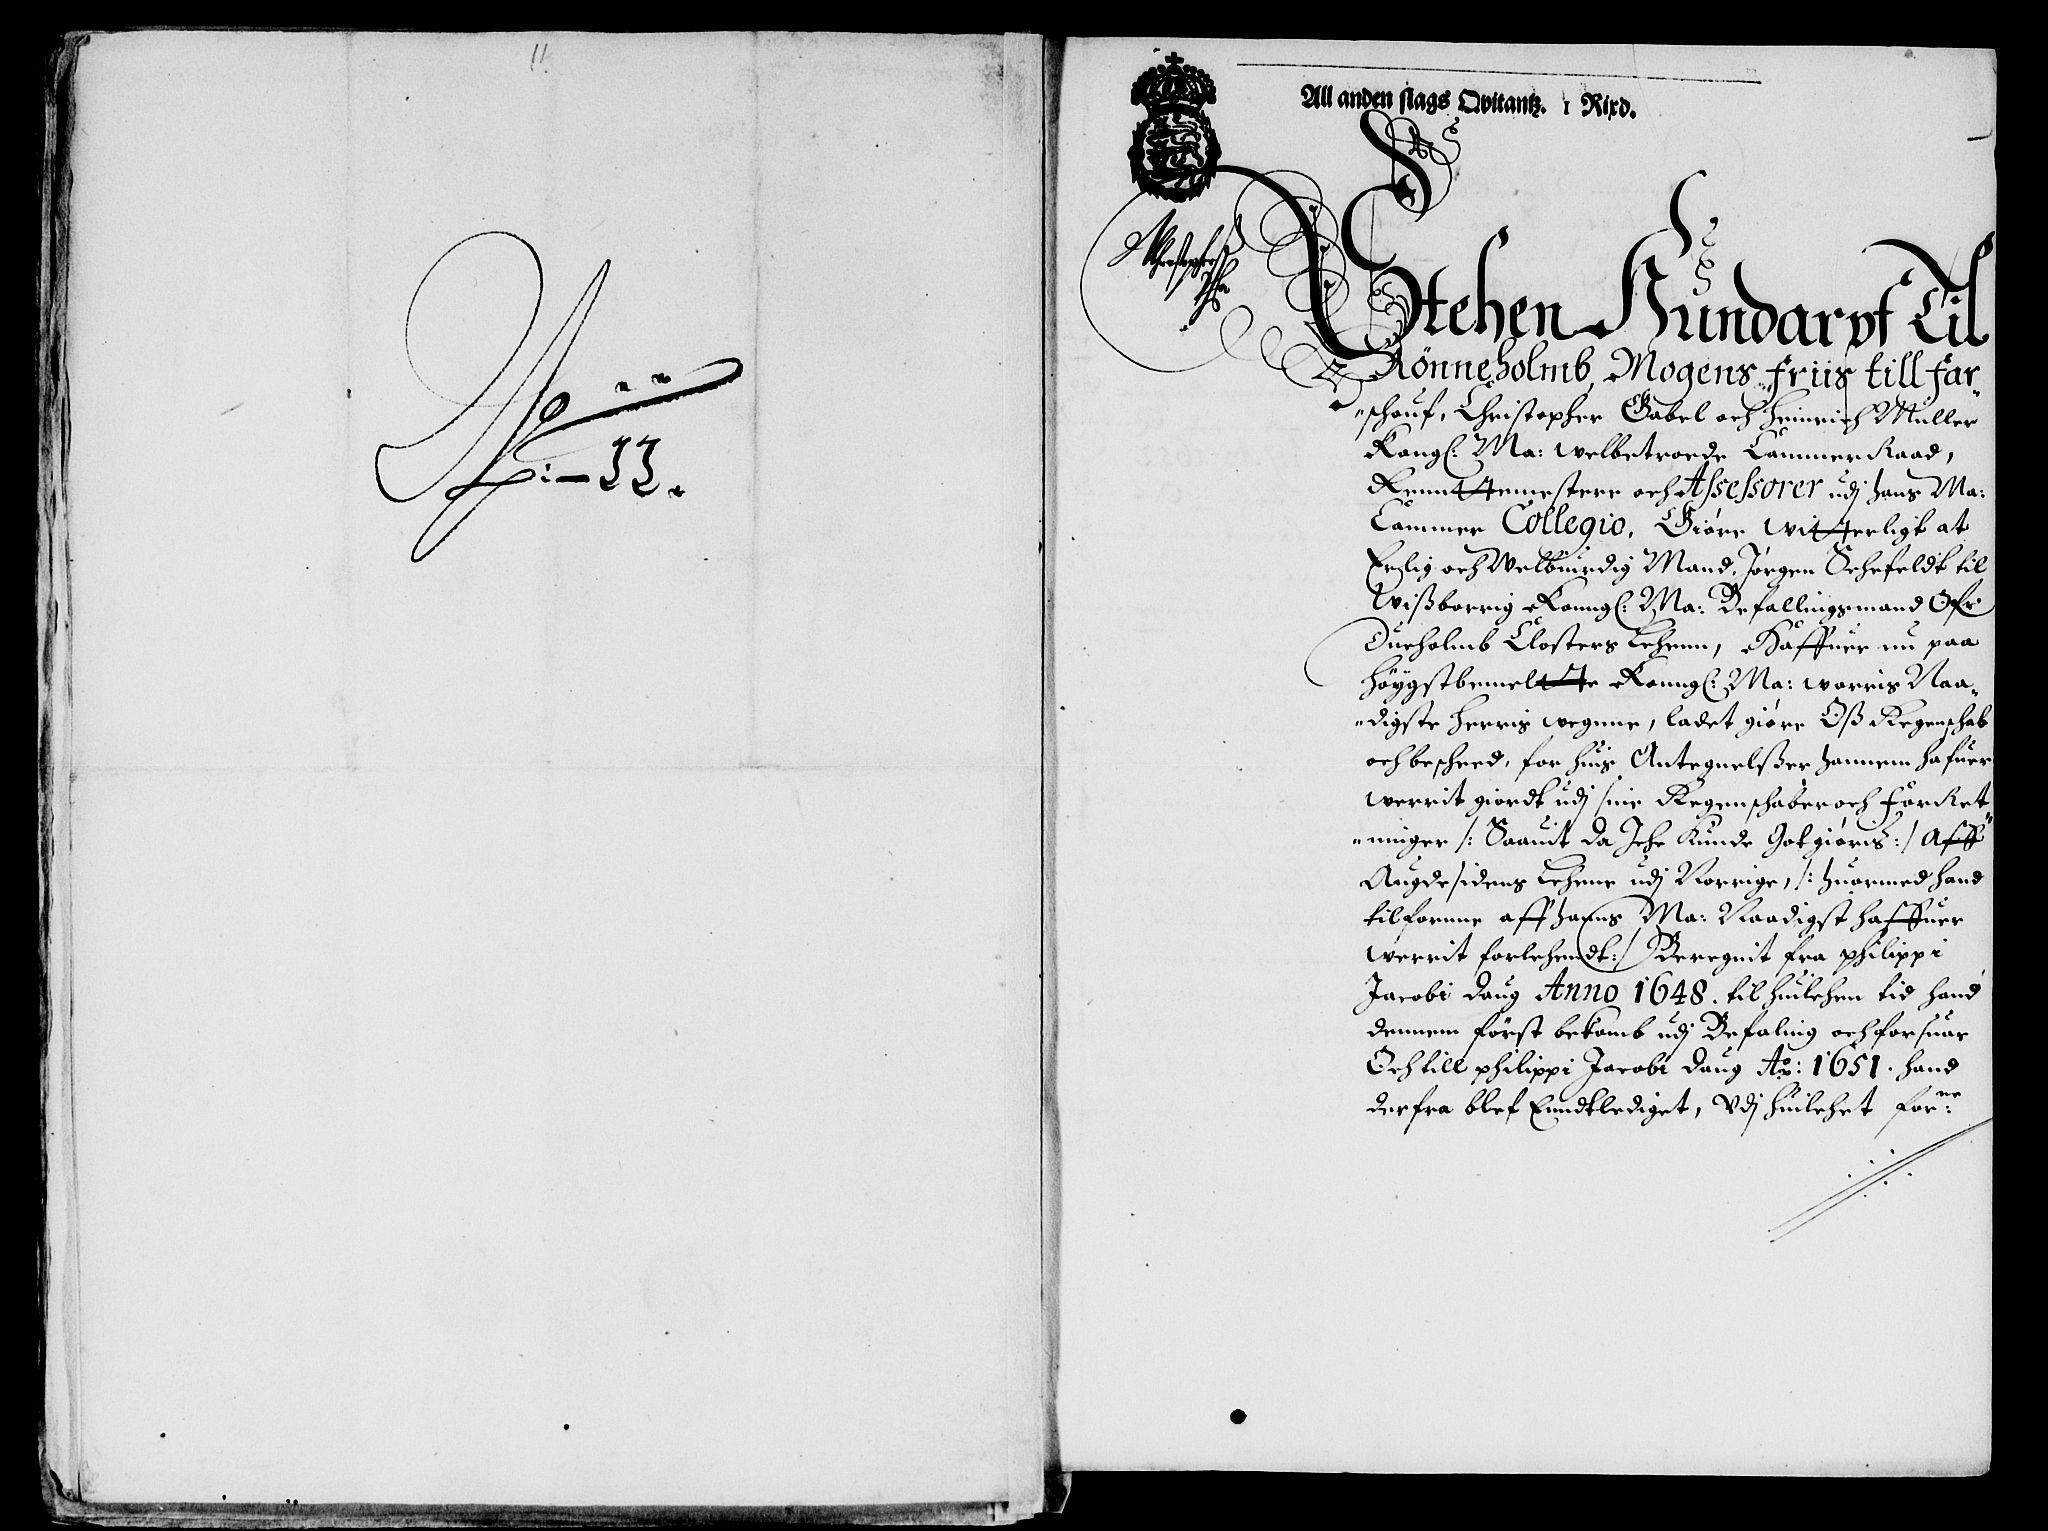 11.
No
L:—11.
All anden slags Qvitantz. 1 Rixd.
Stehen Hundarpf Til
Rönneholmb, Mogens Friis till Far„
„schouf, Christopher Gabel och Heinrich Müller
Kongl: Ma: welbetroede Cammer Raad,
Renntemestere och Assessorer udj hans Ma:
Cammer Collegio, Giöre witterligt at
Erlig och Welbiurdig Mand, Jörgen Sehefeldt til
Wißborrig Konngl: Ma: Befallingsmand Ofr
Dueholmb Closters Lehenn, Haffuer nu paa
höygstbemelte Konngl: Ma: worris Naa„
„digste Herris wegnne, ladet giöre Oß Regenschab
och bescheed, for huis Antegnelßer hannem hafuer
werrit giordt udj sine Regenschaber och ForRet„
„ninger /: Saauit da Iche Kunde Gotgiöris :/ Aff
Augdesidens Lehene udj Norrige, /: huormed hand
tilfornne aff hanns Ma: Naadigst haffuer
werrit forlehendt :/ Beregnit fra philippi
Jacobi daug Anno 1648. til huilchen tid hand
dennem först bekomb udj Befaling och forsuar
Och till philippi Jacobi daug Ao: 1651. hand
derfra blef Enndtlediget, Udj huilchet forne: